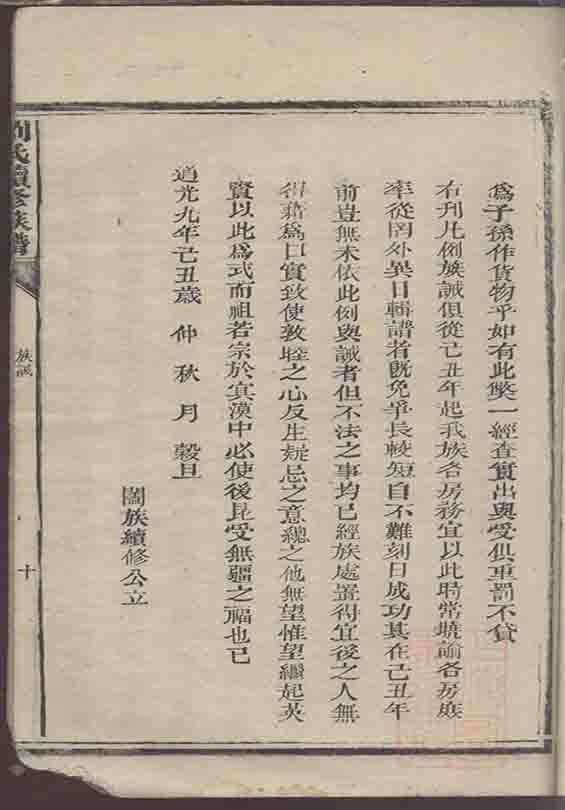 為子孫作貨物乎如有此獘一經查實出與受俱重罰不貸
右刊凡例族誡俱從己丑年起我族各房務宜以此時常曉諭各房庶
率從罔外異日輯譜者既免爭長較短自不難刻日成功其在己丑年
前豈無未依此例與誡者但不法之事均已經族處置得宜後之人無
得藉為口實致使敦睦之心反生疑忌之意總之他無望惟望繼起英
賢以此為式而祖若宗於㝠漠中必使後昆受無疆之福也已
道光九年己丑歲 仲秋月 穀旦
闔族續修公立
劉氏續修族譜
族誡
十